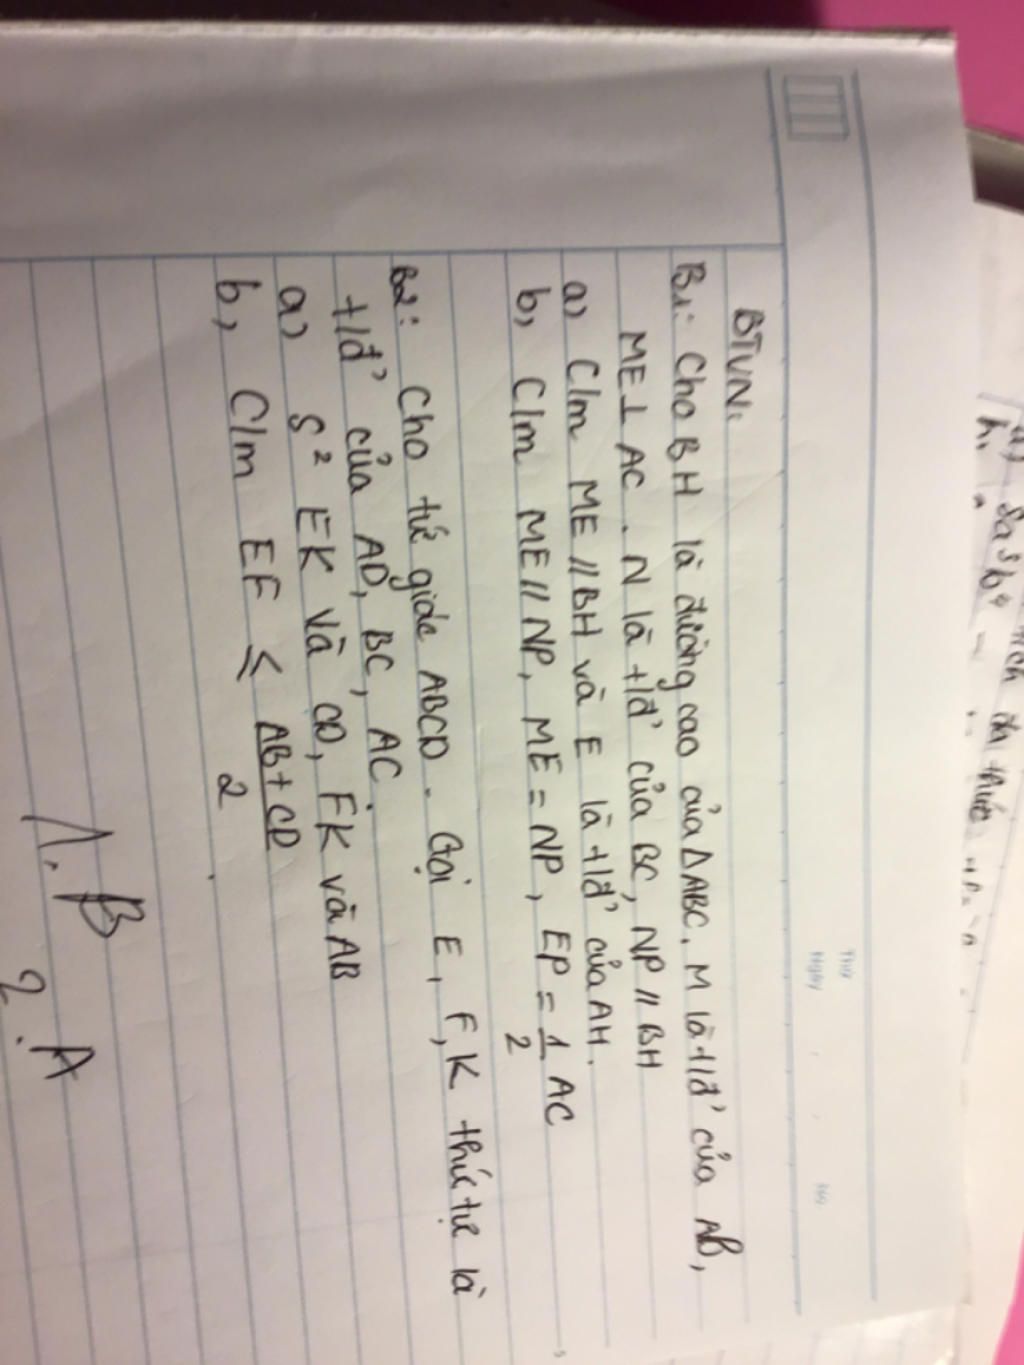 Thứ
Ngày
BTVN:
B1: Cho BH là đường cao của ΔABC. M là t/đ' của AB,
ME ⊥ AC. N là t/đ' của BC, NP // BH
a) C/m ME // BH và E là t/đ' của AH.
b, C/m ME // NP, ME = NP, EP = 1/2 AC
B2: Cho tứ giác ABCD. Gọi E, F, K thứ tự là
t/đ' của AD, BC, AC.
a) S² EK và CD, FK và AB
b, C/m EF ≤ AB+CD/2
1. B
2. A